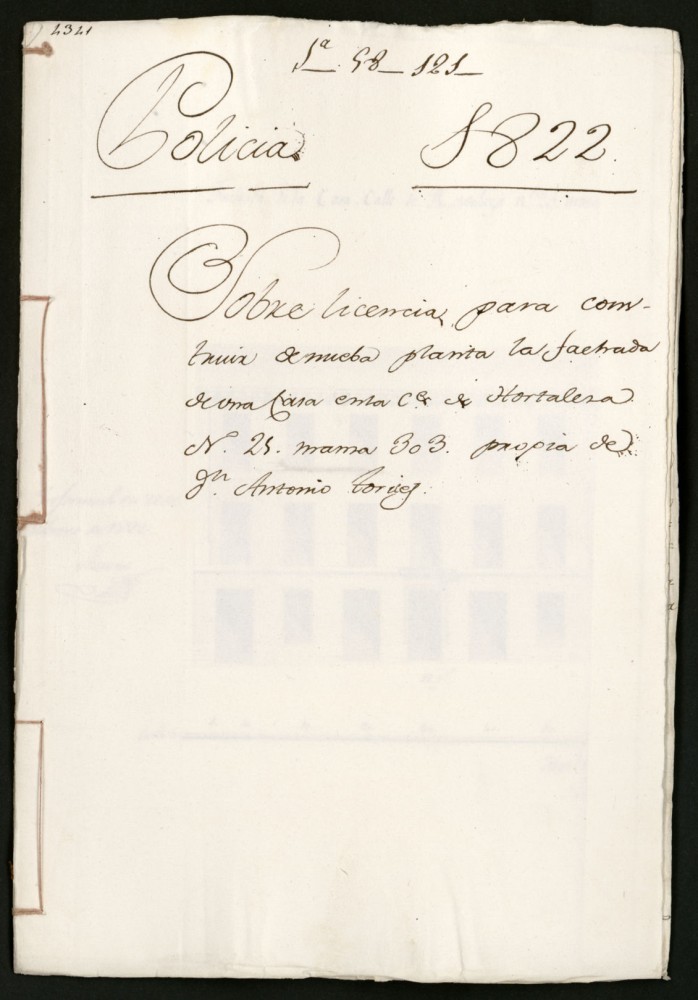 4321
1ª 58-121
Policia 1822
Sobre licencia para cons-
truir de nueba planta la fachada
de una Casa en la Ce. de Hortaleza
N. 25. manna 303. propia de
Dn. Antonio